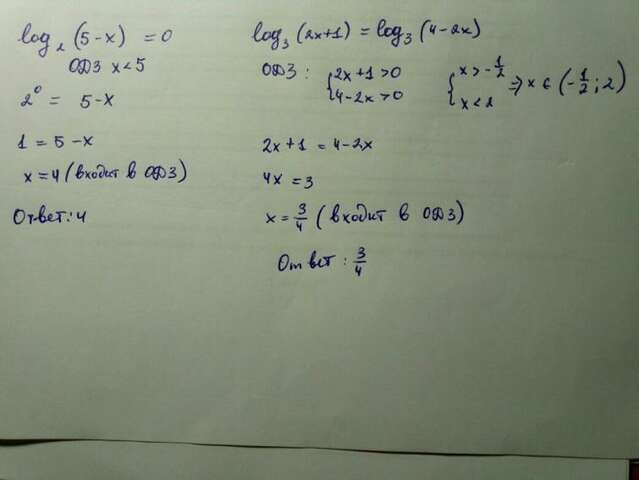 log₂(5-x) = 0
ОДЗ x<5
2⁰ = 5-x
1 = 5-x
x=4 (входит в ОДЗ)
Ответ: 4
log₃(2x+1) = log₃(4-2x)
ОДЗ: { 2x+1>0 { x>-1/2 => x ∈ (-1/2; 2)
4-2x>0 x<2
2x+1 = 4-2x
4x = 3
x = 3/4 (входит в ОДЗ)
Ответ: 3/4